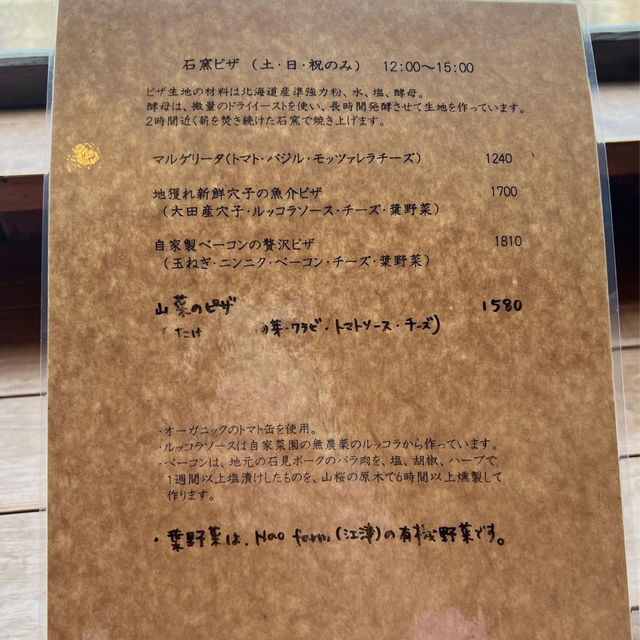 石窯ピザ （土・日・祝のみ） 12:00～15:00
ピザ生地の材料は北海道産準強力粉、水、塩、酵母。
酵母は、微量のドライイーストを使い、長時間発酵させて生地を作っています。
2時間近く薪を焚き続けた石窯で焼き上げます。
マルゲリータ(トマト・バジル・モッツァレラチーズ) 1240
地獲れ新鮮穴子の魚介ピザ 1700
（大田産穴子・ルッコラソース・チーズ・葉野菜）
自家製ベーコンの贅沢ピザ 1810
（玉ねぎ・ニンニク・ベーコン・チーズ・葉野菜）
山菜のピザ 1580
たけ 菜・ワラビ・トマトソース・チーズ)
・オーガニックのトマト缶を使用。
・ルッコラソースは自家菜園の無農薬のルッコラから作っています。
・ベーコンは、地元の石見ポークのバラ肉を、塩、胡椒、ハーブで
1週間以上塩漬けしたものを、山桜の原木で6時間以上燻製して
作ります。
・葉野菜は、Hao farm(江津)の有機野菜です。